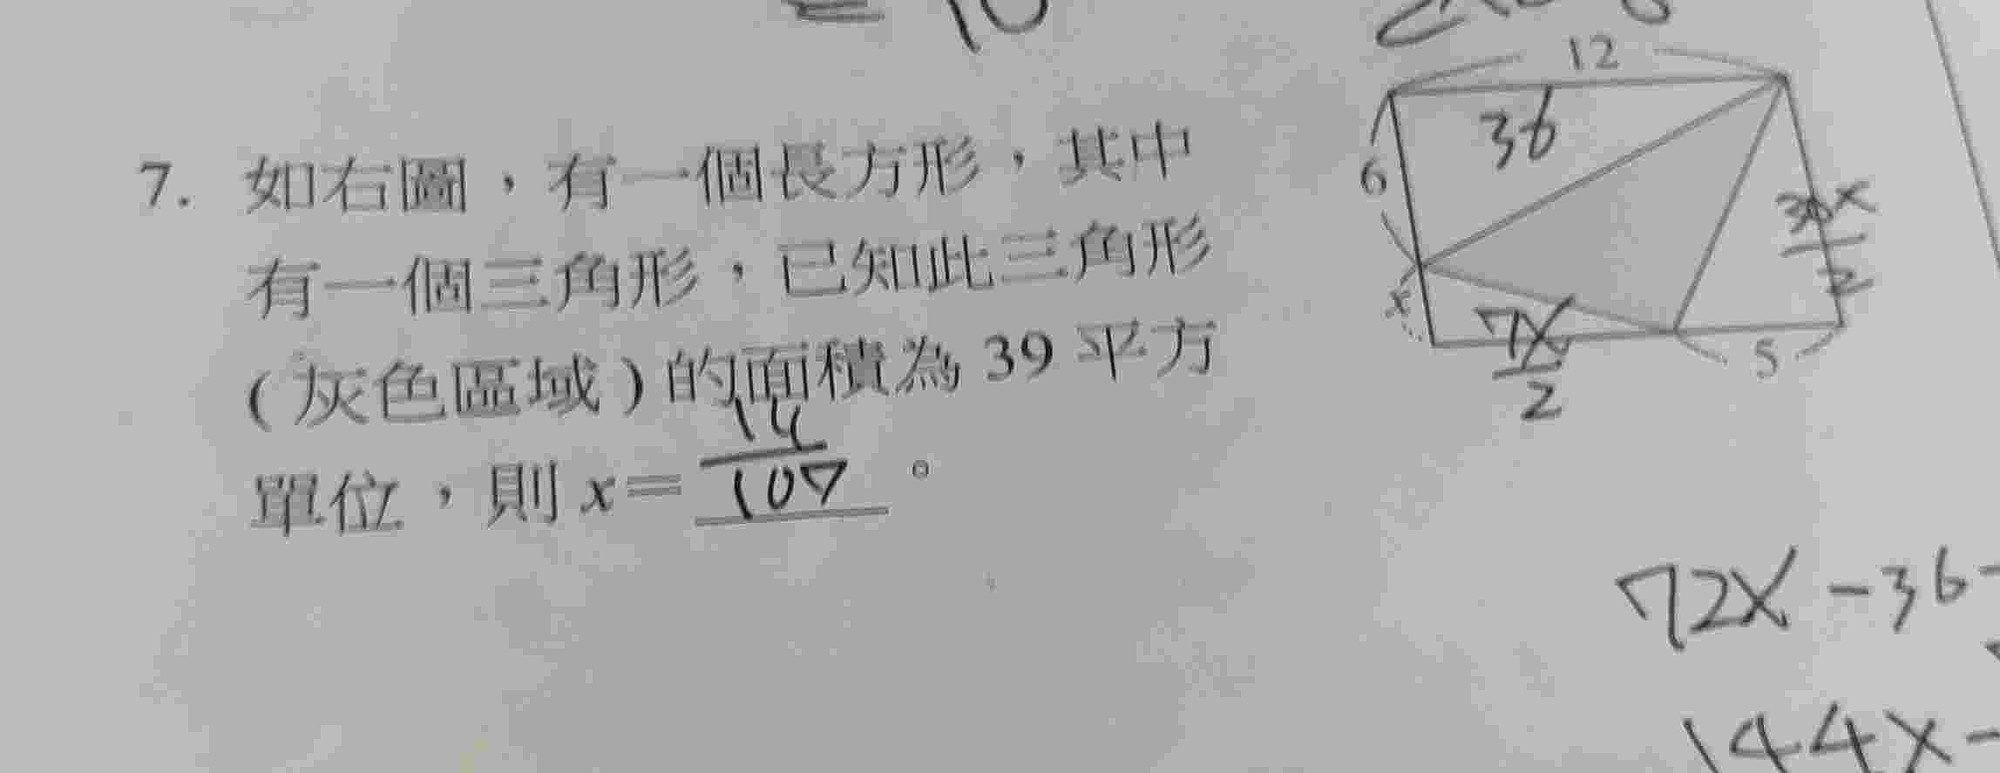 = 10
12
7. 如右圖，有一個長方形，其中
36
6
有一個三角形，已知此三角形
x
7x
2
5
(灰色區域)的面積為 39 平方
14
單位，則 x= 107 。
72x-36-
144x-